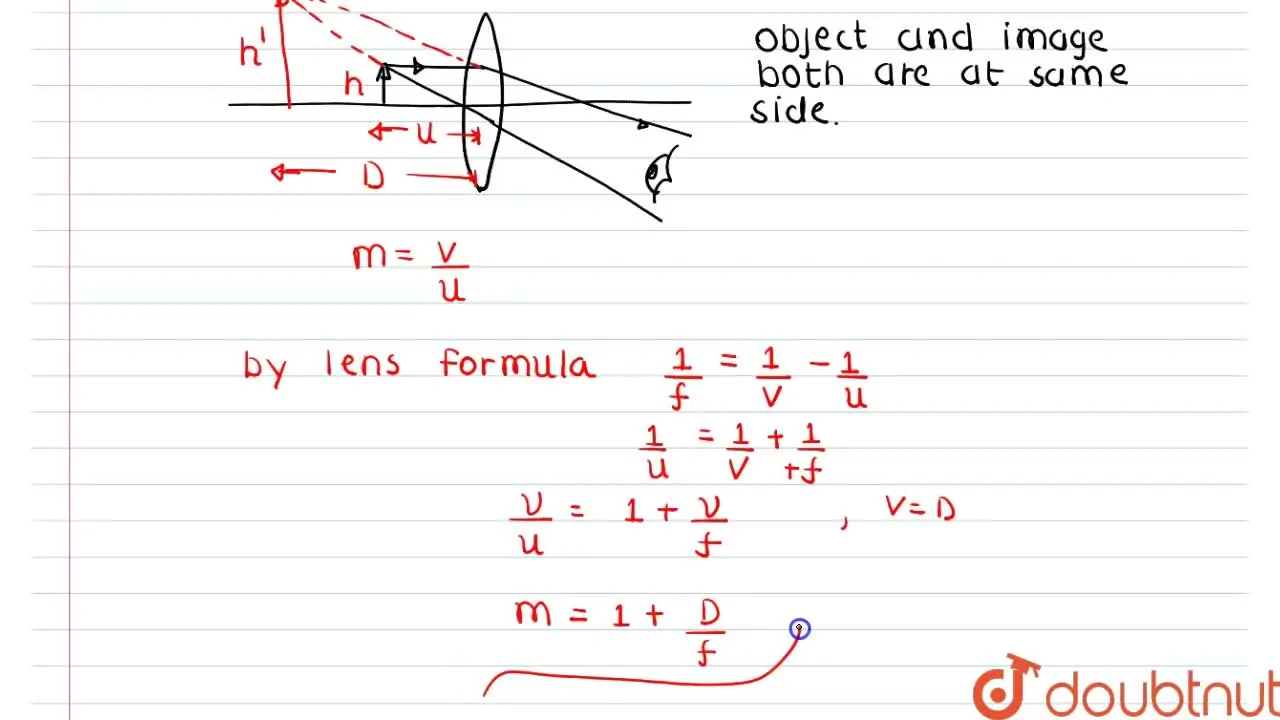 object and image
both are at same
side.
h'
h
u
D
m = v/u
by lens formula 1/f = 1/v - 1/u
1/u = 1/v + 1/+f
v/u = 1 + v/f , V = D
m = 1 + D/f
doubtnut